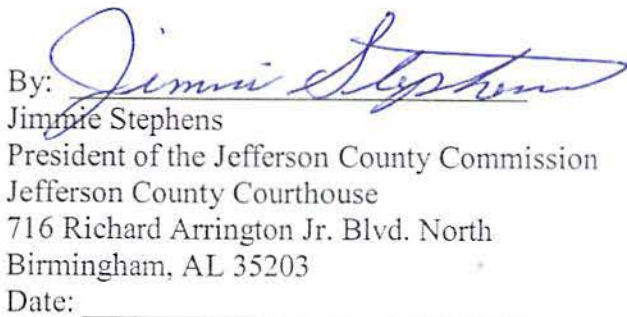 By: Jimmie Stephens
Jimmie Stephens
President of the Jefferson County Commission
Jefferson County Courthouse
716 Richard Arrington Jr. Blvd. North
Birmingham, AL 35203
Date: